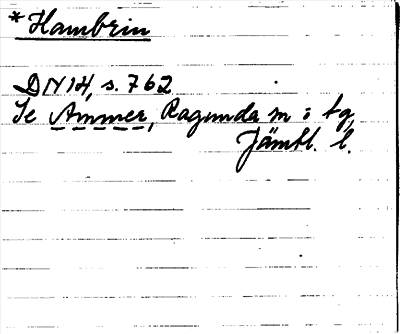 *Hambrin
DN 14, s. 762
Se Ammer, Ragunda sn o tg,
Jämtl. l.